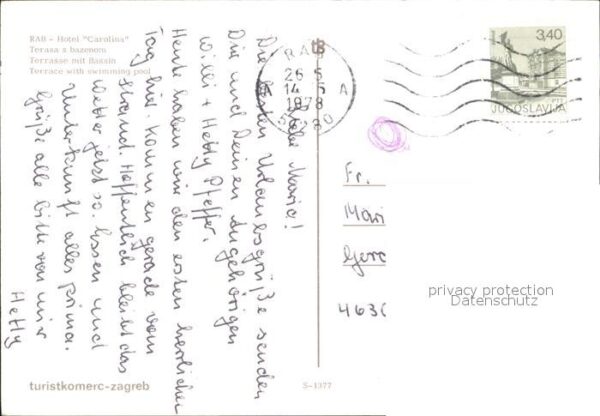 RAB - Hotel "Carolina"
Terasa s bazenom
Terrasse mit Bassin
Terrace with swimming pool
Liebe Maria!
Die besten Urlaubsgrüße senden
Dir und Deinen Angehörigen
Willi + Hetty Pfeffer.
Heute haben wir den ersten herrlichen
Tag hier. Kommen gerade vom
Strand. Hoffentlich bleibt das
Wetter jetzt so. Essen und
Unterkunft alles prima.
Grüße alle bitte von mir
Hetty
turistkomerc-zagreb
S-1377
RAB
26 5
14 - 5
A A
1978
51280
3,40
PTT
JUGOSLAVIJA
Fr.
Mari
Gerc
463
privacy protection
Datenschutz